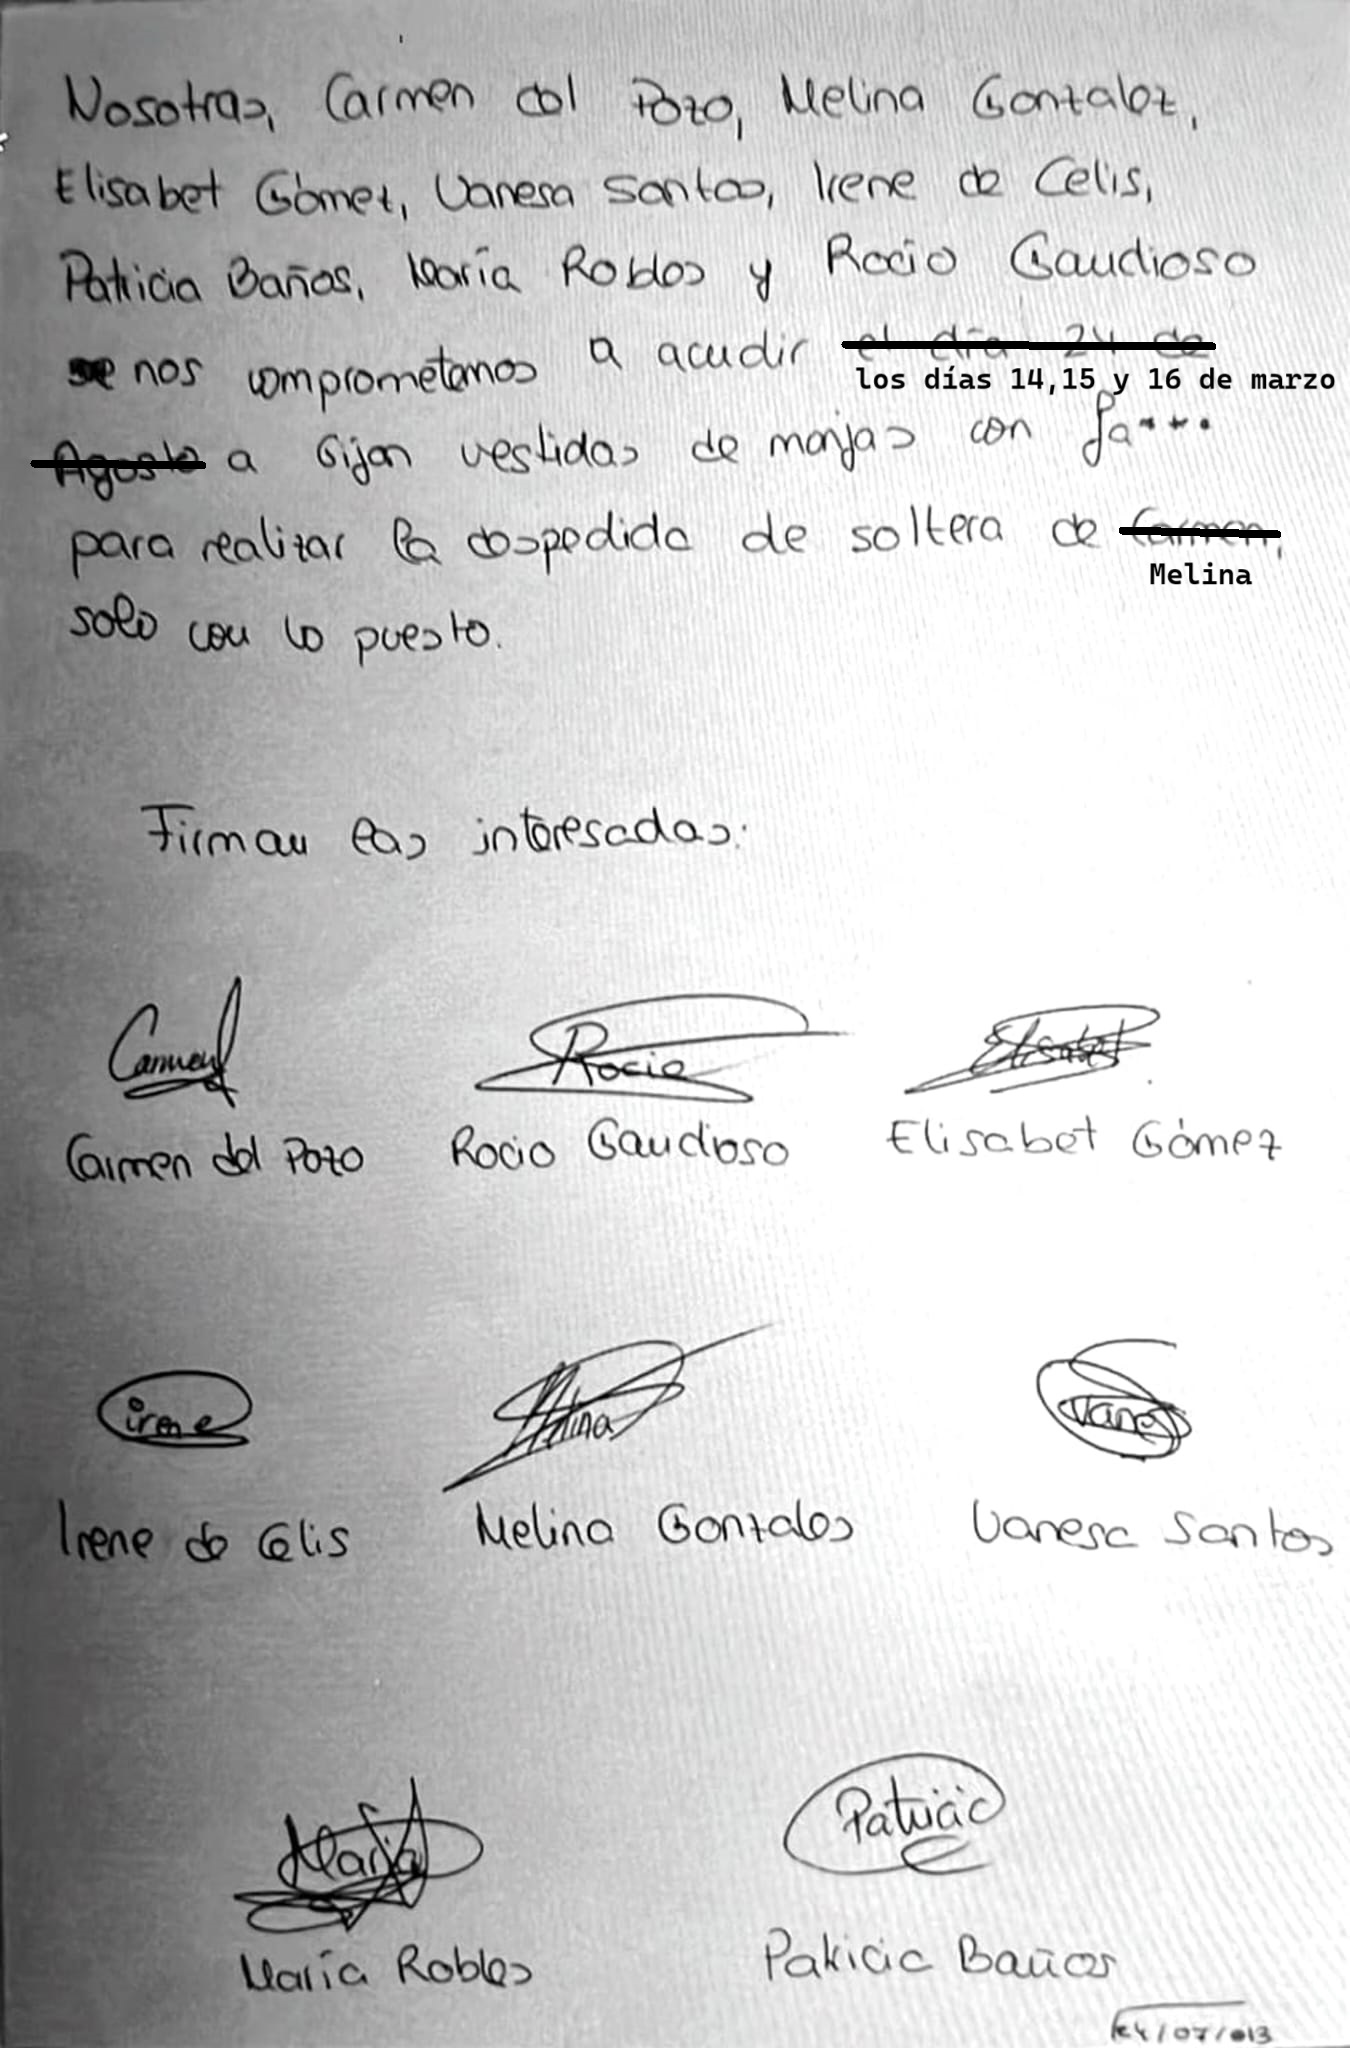 Nosotras, Carmen del Pozo, Melina Gonzalez,
Elisabet Gómez, Vanesa Santos, Irene de Celis,
Patricia Baños, María Robles y Rocio Gaudioso
se nos comprometemos a acudir el día 24 de
los días 14,15 y 16 de marzo
Agosto a Gijon vestidas de monjas con fa....
para realizar la despedida de soltera de Carmen,
Melina
solo con lo puesto.
Firman las interesadas:
Carmen Rocio Elisabet
Carmen del Pozo Rocio Gaudioso Elisabet Gómez
irene Melina Vanes
Irene de Celis Melina Gonzales Vanesa Santos
María Patricia
María Robles Patricia Baños
24/07/013